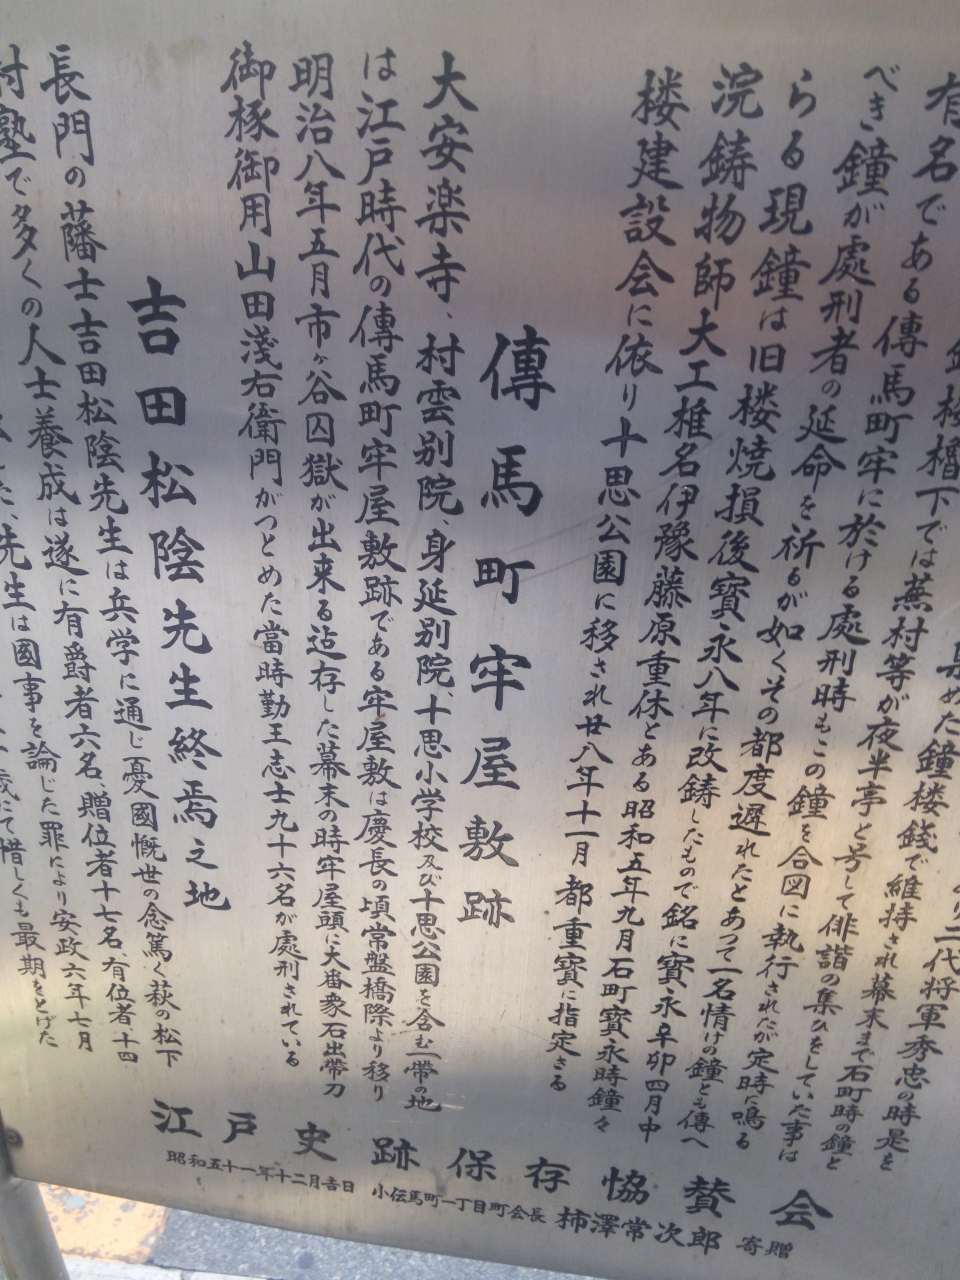 二代将軍秀忠の時是を
鐘楼櫓下では蕪村等が夜半亭と号して俳諧の集ひをしていた事は
有名である傳馬町牢に於ける處刑時もこの鐘を合図に執行されたが定時に鳴る
べき鐘が處刑者の延命を祈るが如くその都度遅れたとあつて一名情けの鐘とも傳へ
らる現鐘は旧楼焼損後寶永八年に改鋳したもので銘に寶永辛卯四月中
浣鋳物師大工椎名伊豫藤原重休とある昭和五年九月石町寶永時鐘々
楼建設会に依り十思公園に移され廿八年十一月都重寶に指定さる
傳馬町牢屋敷跡
大安楽寺、村雲別院、身延別院、十思小学校及び十思公園を含む一帯の地
は江戸時代の傳馬町牢屋敷跡である牢屋敷は慶長の頃常盤橋際より移り
明治八年五月市ヶ谷囚獄が出来る迠存した幕末の時牢屋頭に大番衆石出帶刀
御椓御用山田淺右衛門がつとめた當時勤王志士九十六名が處刑されている
吉田松陰先生終焉之地
長門の藩士吉田松陰先生は兵学に通じ憂國慨世の念篤く萩の松下
村塾で多くの人士養成は遂に有爵者六名、贈位者十七名、有位者十四
した、先生は國事を論じた罪により安政六年七月
歳にて惜しくも最期をとげた
江戸史跡保存協賛会
昭和五十一年十二月吉日 小伝馬町一丁目町会長 柿澤常次郎 寄贈